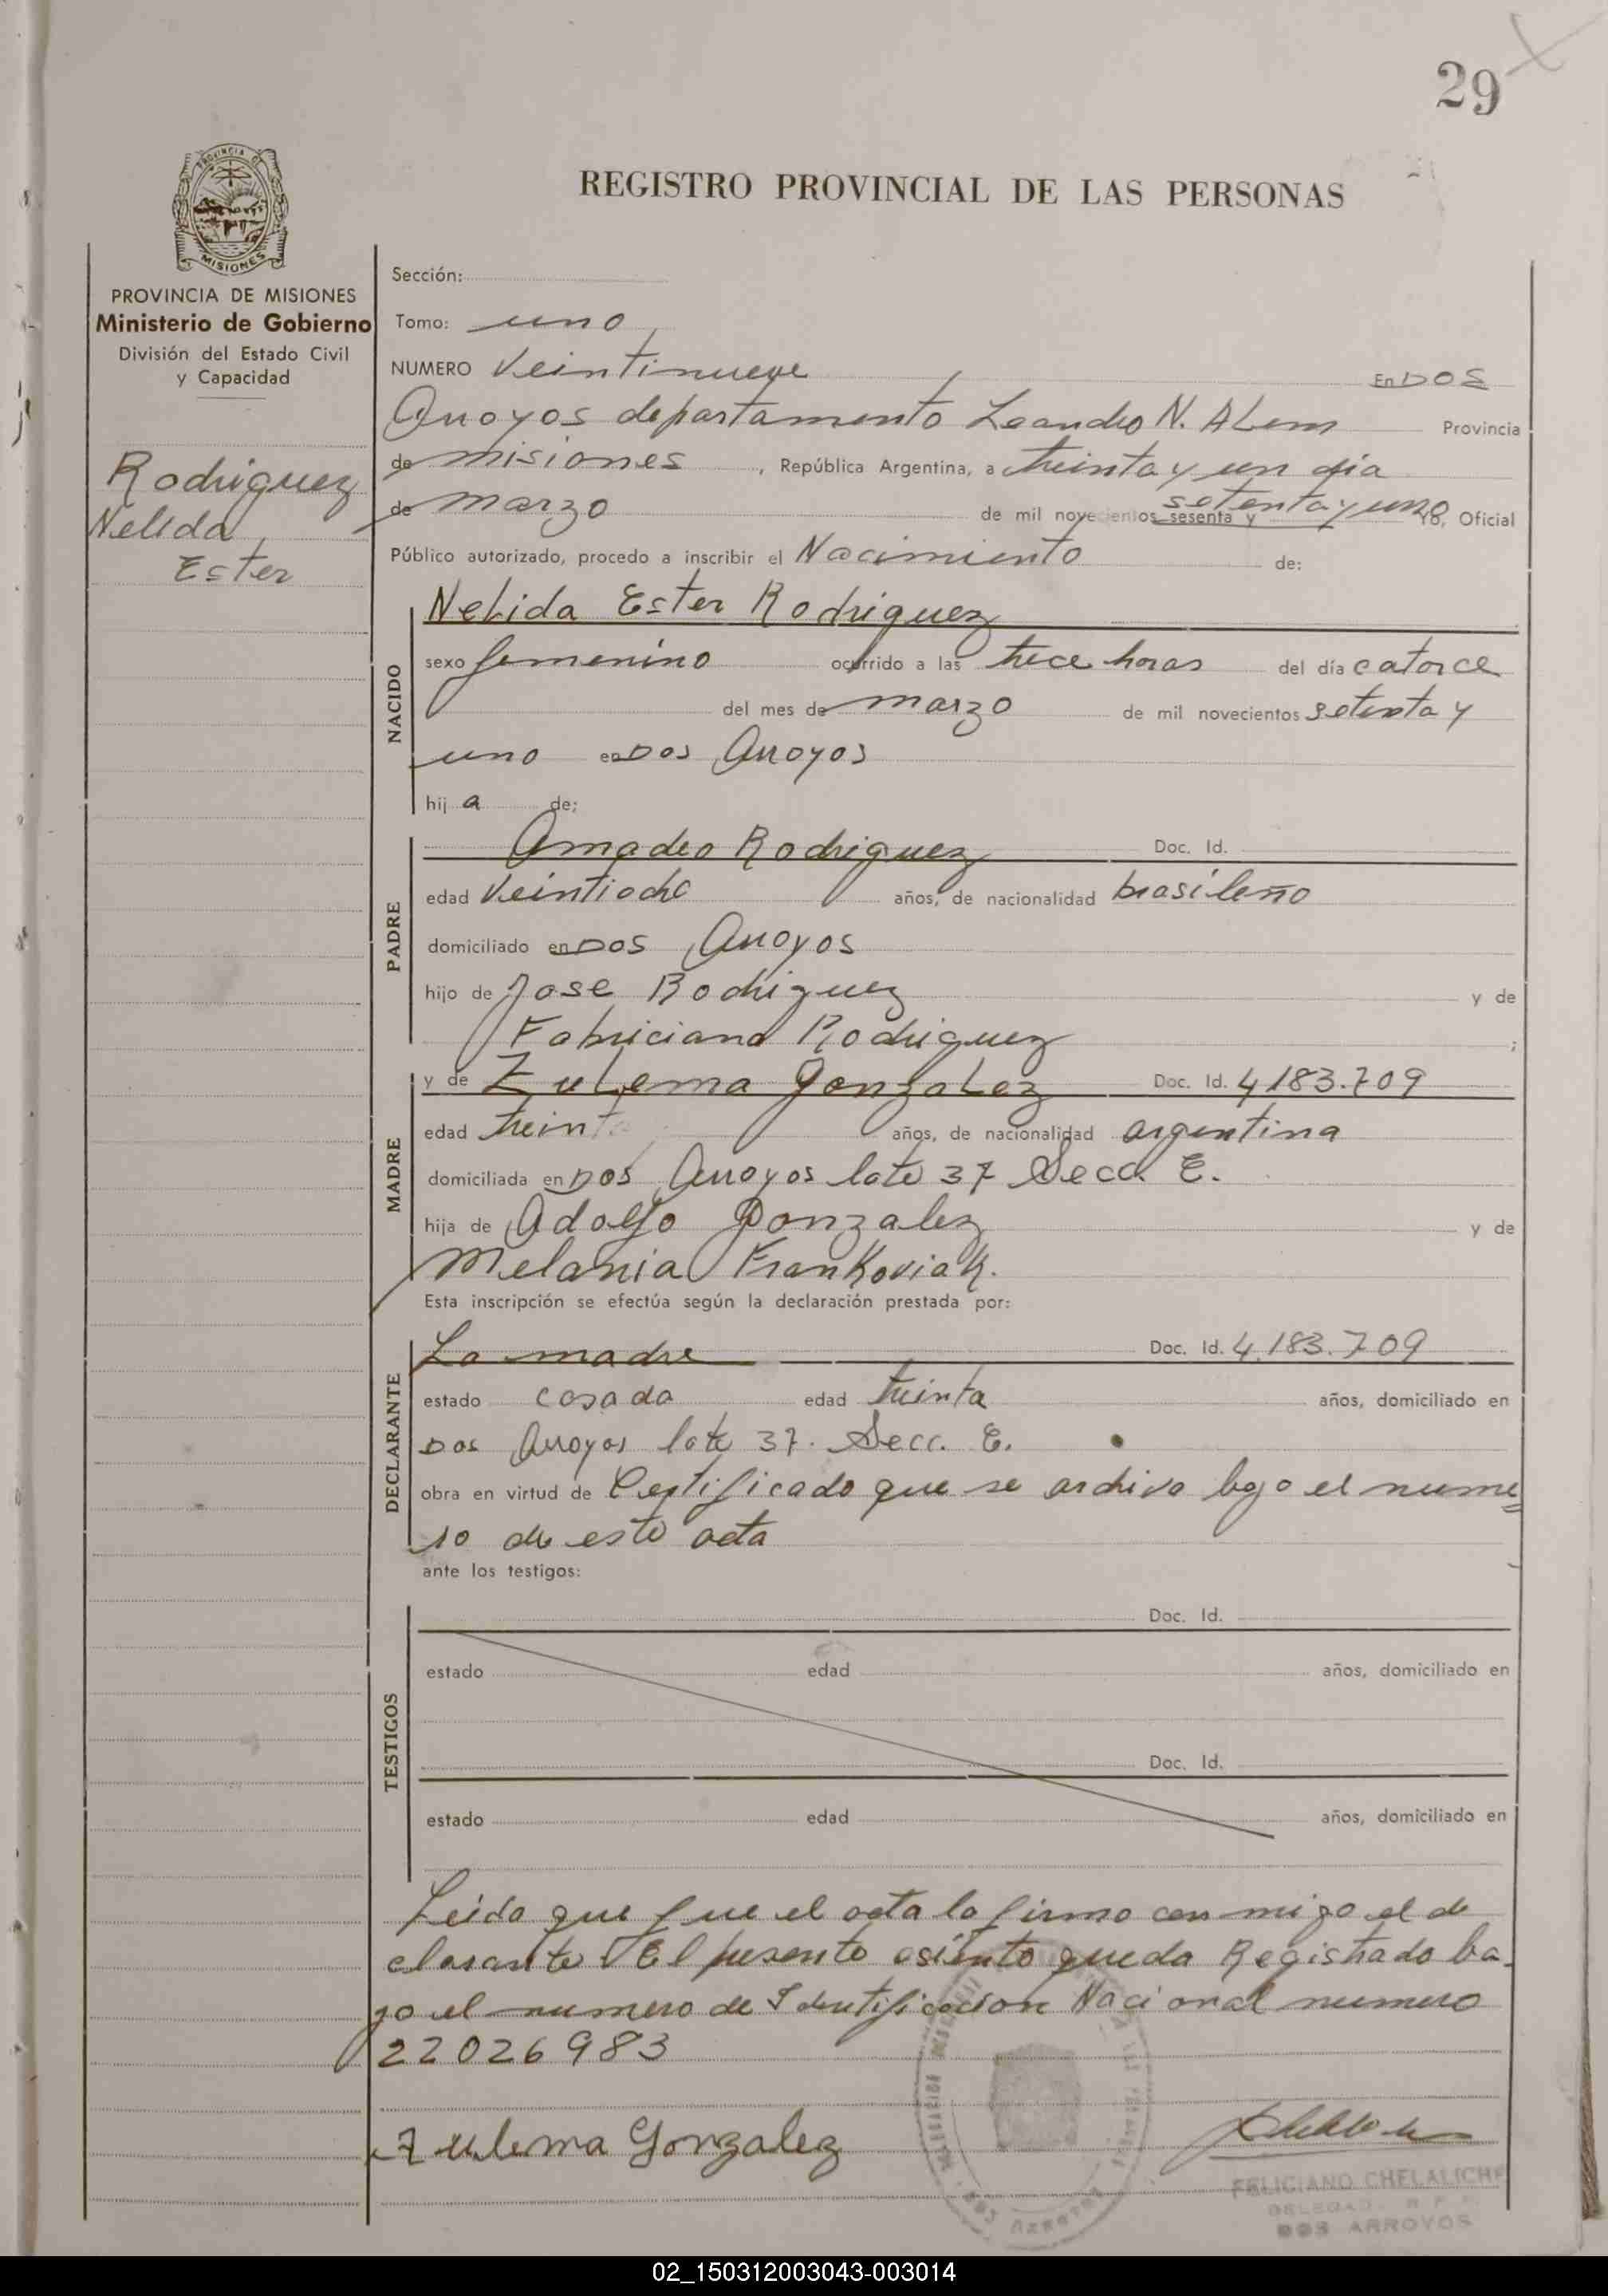 29
REGISTRO PROVINCIAL DE LAS PERSONAS
PROVINCIA DE MISIONES
PROVINCIA DE MISIONES
Ministerio de Gobierno
División del Estado Civil
y Capacidad
Rodriguez
Nelida
Ester
Sección:
Tomo: uno
NUMERO Veintinueve En DOS
Arroyos departamento Leandro N. ALem Provincia
de misiones, República Argentina, a treinta y un dia
de marzo de mil novecientos sesenta y setenta y uno Yo, Oficial
Público autorizado, procedo a inscribir el Nacimiento de:
NACIDO
Nelida Ester Rodriguez
sexo femenino ocurrido a las trece horas del día catorce
del mes de marzo de mil novecientos setenta y
uno en Dos Arroyos
hij a de:
PADRE
Amadeo Rodriguez Doc. Id.
edad Veintiocho años, de nacionalidad brasileño
domiciliado en DOS Arroyos
hijo de Jose Rodriguez y de
Fabriciana Rodriguez ;
MADRE
y de Zulema Gonzalez Doc. Id. 4183.709
edad treinta años, de nacionalidad argentina
domiciliada en Dos Arroyos lote 37 Secc. E.
hija de Adolfo Gonzalez y de
Melania Frankoviak.
Esta inscripción se efectúa según la declaración prestada por:
DECLARANTE
La madre Doc. Id. 4.183.709
estado casada edad treinta años, domiciliado en
Dos Arroyos lote 37. Secc. E.
obra en virtud de Certificado que se archiva bajo el nume
ro de esta acta
ante los testigos:
TESTIGOS
Doc. Id.
estado edad años, domiciliado en
Doc. Id.
estado edad años, domiciliado en
Leida que fue el acta la firma con migo el de
clarante El presente asiento queda Registrado ba
jo el numero de Identificacion Nacional numero
22026983
Zulema Gonzalez
FELICIANO CHELALICHE
DELEGADO R. P. P.
DOS ARROYOS
02_150312003043-003014